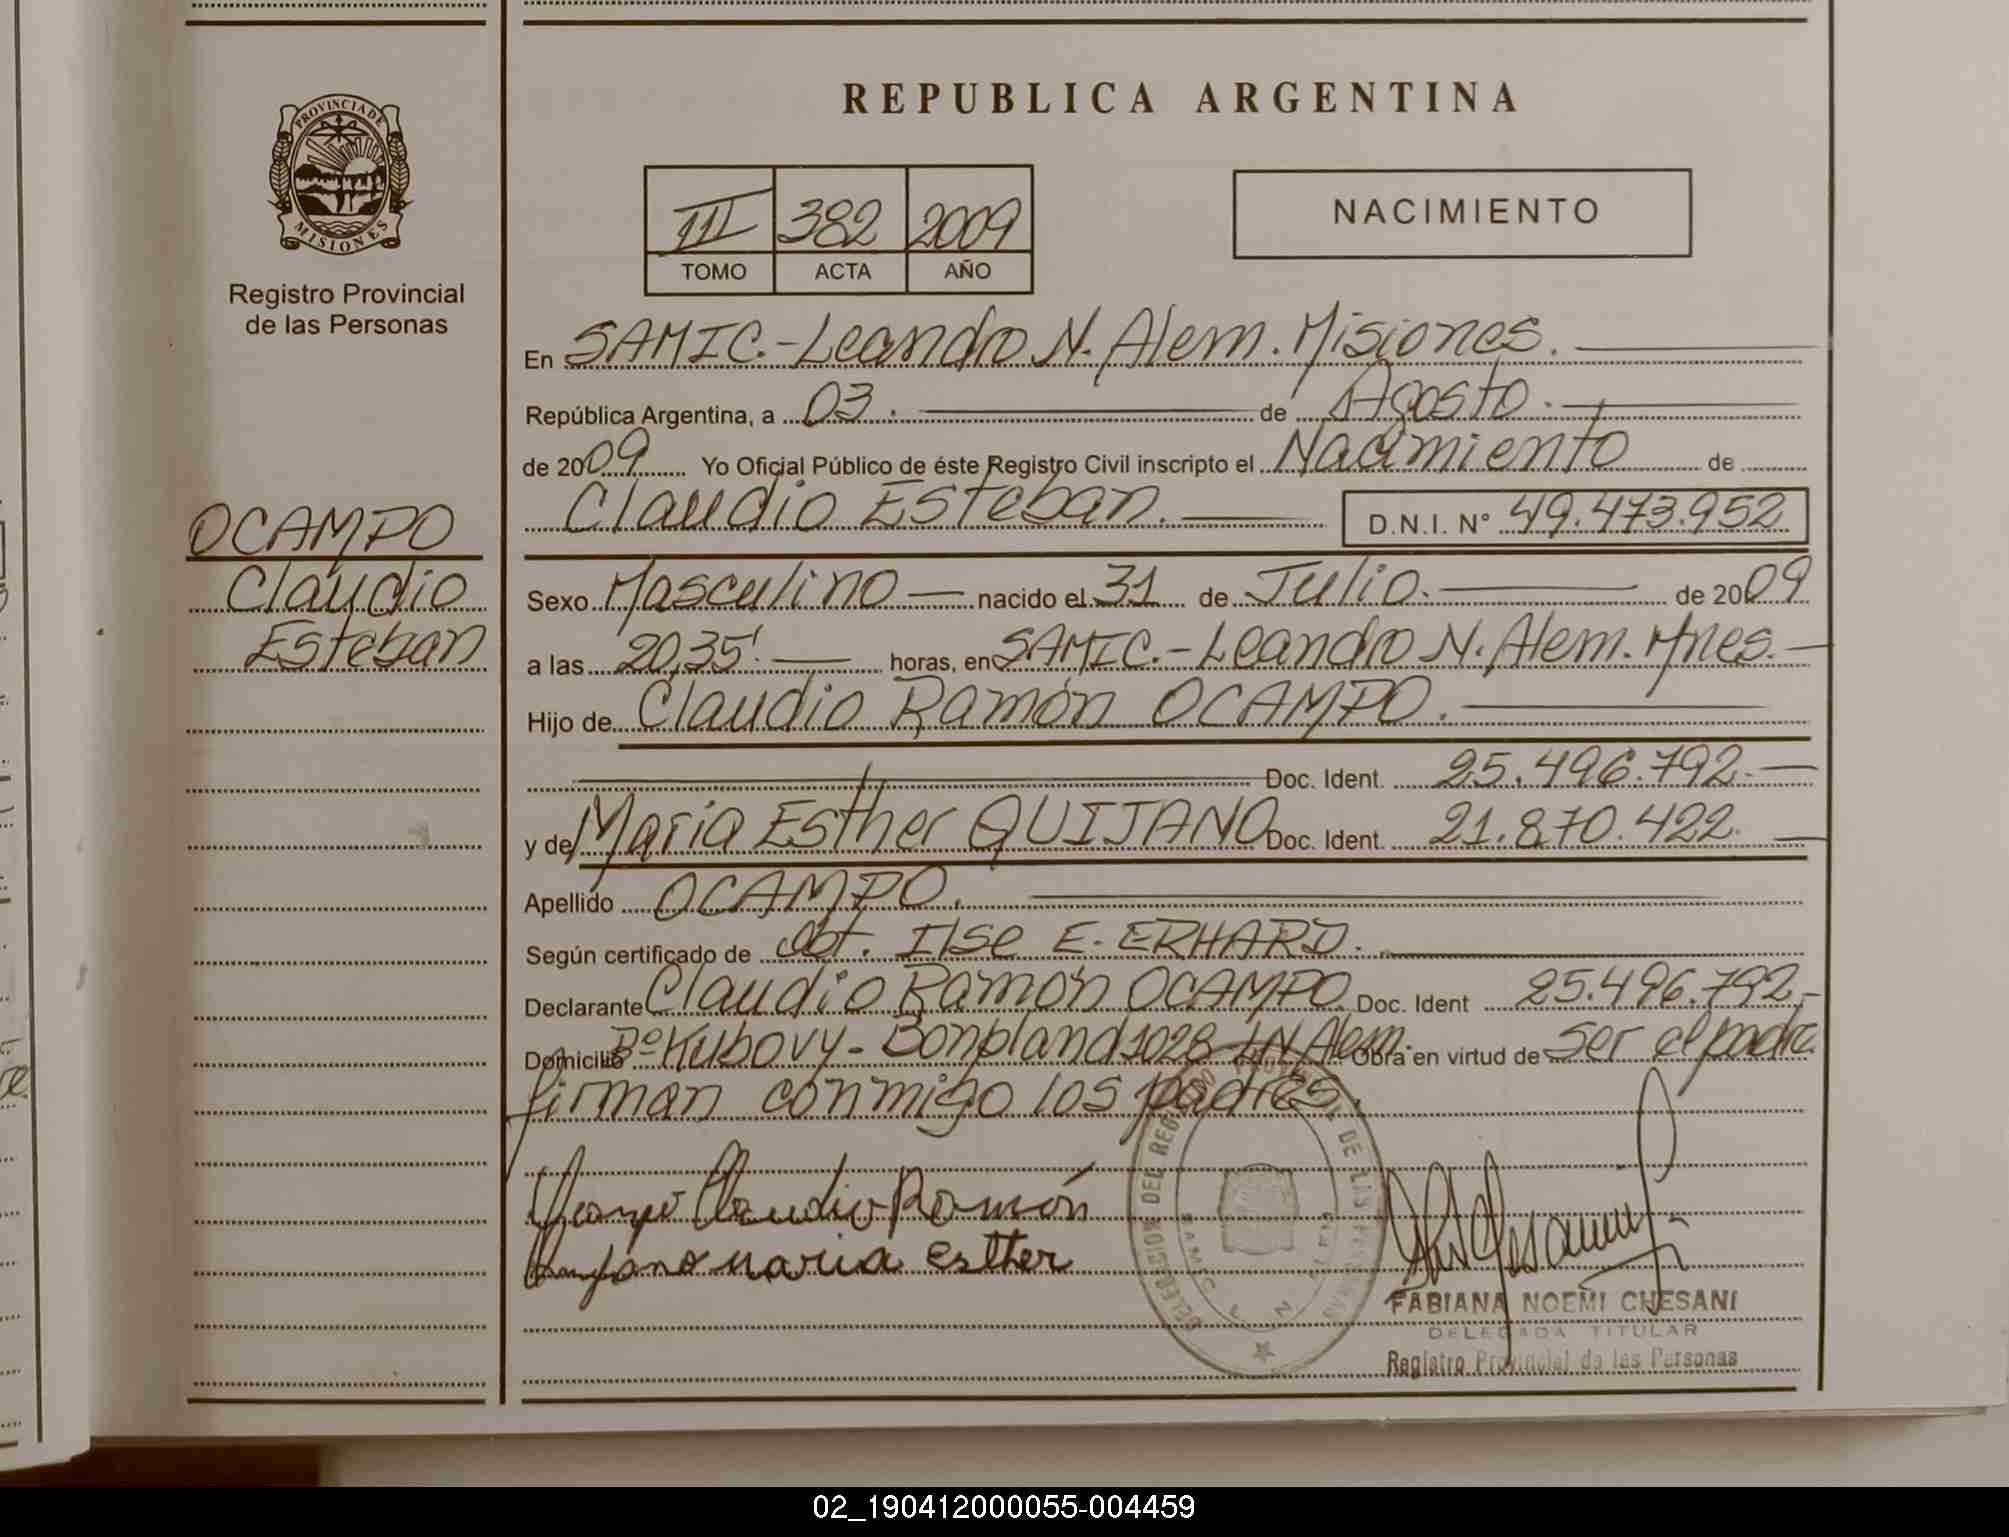 PROVINCIA DE
MISIONES
Registro Provincial
de las Personas
OCAMPO
Claudio
Esteban
REPUBLICA ARGENTINA
III 382 2009
TOMO ACTA AÑO
NACIMIENTO
En SAMIC.-Leandro N. Alem. Misiones.
República Argentina, a 03. de Agosto.
de 2009 Yo Oficial Público de éste Registro Civil inscripto el Nacimiento de
Claudio Esteban. D.N.I. N° 49.473.952
Sexo Masculino nacido el 31 de Julio. de 2009
a las 20,35'. horas, en SAMIC.-Leandro N. Alem. Mnes.
Hijo de Claudio Ramón OCAMPO.
Doc. Ident. 25.496.792.
y de Maria Esther QUIJANO Doc. Ident. 21.870.422.
Apellido OCAMPO.
Según certificado de Obt. Ilse E. ERHARD.
Declarante Claudio Ramón OCAMPO. Doc. Ident 25.496.792.
Domicilio B° Kubovy - Bonpland 1028 LN Alem. Obra en virtud de ser el padre
firman conmigo los padres.
Claudio Ramón
maria esther
DELEGACION DEL REGISTRO PROVINCIAL DE LAS PERSONAS
FABIANA NOEMI CHESANI
DELEGADA TITULAR
Registro Provincial de las Personas
02_190412000055-004459